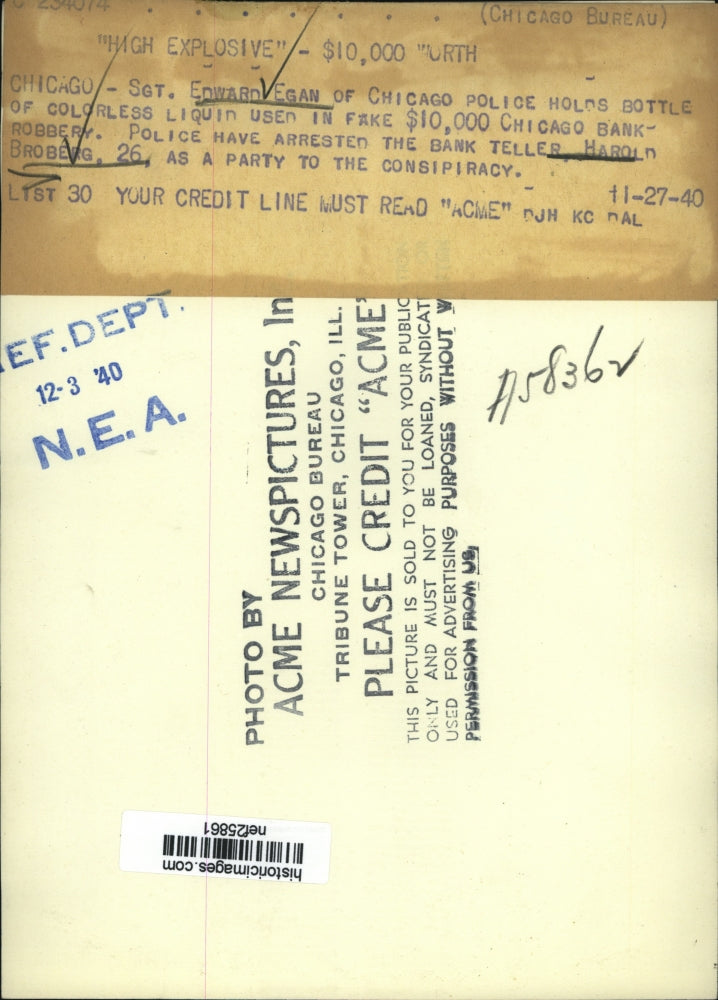 C 234074 (CHICAGO BUREAU)
"HIGH EXPLOSIVE" - $10,000 WORTH
CHICAGO - SGT. EDWARD EGAN OF CHICAGO POLICE HOLDS BOTTLE
OF COLORLESS LIQUID USED IN FAKE $10,000 CHICAGO BANK-
ROBBERY. POLICE HAVE ARRESTED THE BANK TELLER HAROLD
BROBERG, 26, AS A PARTY TO THE CONSIPIRACY.
LIST 30 YOUR CREDIT LINE MUST READ "ACME" DJH KC DAL 11-27-40
EF. DEPT.
12-3 '40
N.E.A.
A58362
PHOTO BY
ACME NEWSPICTURES, In
CHICAGO BUREAU
TRIBUNE TOWER, CHICAGO, ILL.
PLEASE CREDIT "ACME"
THIS PICTURE IS SOLD TO YOU FOR YOUR PUBLIC
ONLY AND MUST NOT BE LOANED, SYNDICAT
USED FOR ADVERTISING PURPOSES WITHOUT W
PERMISSION FROM US.
historicimages.com
nef25861